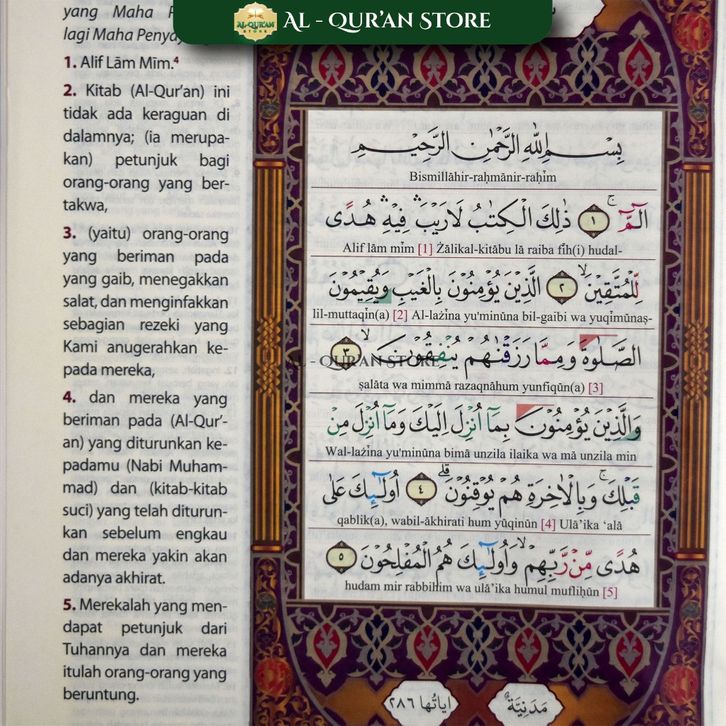 AL - QUR'AN STORE
AL-QUR'AN
STORE
yang Maha
lagi Maha
1. Alif Lām Mīm.⁴
2. Kitab (Al-Qur'an) ini
tidak ada keraguan di
dalamnya; (ia merupa-
kan) petunjuk bagi
orang-orang yang ber-
takwa,
3. (yaitu) orang-orang
yang beriman pada
yang gaib, menegakkan
salat, dan menginfakkan
sebagian rezeki yang
Kami anugerahkan ke-
pada mereka,
4. dan mereka yang
beriman pada (Al-Qur'-
an) yang diturunkan ke-
padamu (Nabi Muham-
mad) dan (kitab-kitab
suci) yang telah diturun-
kan sebelum engkau
dan mereka yakin akan
adanya akhirat.
5. Merekalah yang men-
dapat petunjuk dari
Tuhannya dan mereka
itulah orang-orang yang
beruntung.
بِسْمِ اللّٰهِ الرَّحْمٰنِ الرَّحِيْمِ
Bismillāhir-raḥmānir-raḥīm
الۤمّۤ ۚ ١ ذٰلِكَ الْكِتٰبُ لَا رَيْبَ ۛ فِيْهِ ۛ هُدًى
Alif lām mīm [1] Żālikal-kitābu lā raiba fīh(i) hudal-
لِّلْمُتَّقِيْنَ ۙ ٢ الَّذِيْنَ يُؤْمِنُوْنَ بِالْغَيْبِ وَيُقِيْمُوْنَ
lil-muttaqīn(a) [2] Al-lażīna yu'minūna bil-gaibi wa yuqīmūnaṣ-
الصَّلٰوةَ وَمِمَّا رَزَقْنٰهُمْ يُنْفِقُوْنَ ۙ ٣
AL - QUR'AN STORE
ṣalāta wa mimmā razaqnāhum yunfiqūn(a) [3]
وَالَّذِيْنَ يُؤْمِنُوْنَ بِمَآ اُنْزِلَ اِلَيْكَ وَمَآ اُنْزِلَ مِنْ
Wal-lażīna yu'minūna bimā unzila ilaika wa mā unzila min
قَبْلِكَ ۚ وَبِالْاٰخِرَةِ هُمْ يُوْقِنُوْنَ ۗ ٤ اُولٰۤىِٕكَ عَلٰى
qablik(a), wabil-ākhirati hum yūqinūn [4] Ulā'ika 'alā
هُدًى مِّنْ رَّبِّهِمْ ۙ وَاُولٰۤىِٕكَ هُمُ الْمُفْلِحُوْنَ ٥
hudam mir rabbihim wa ulā'ika humul mufliḥūn [5]
مَدَنِيَّةٌ
اٰيَاتُهَا ٢٨٦